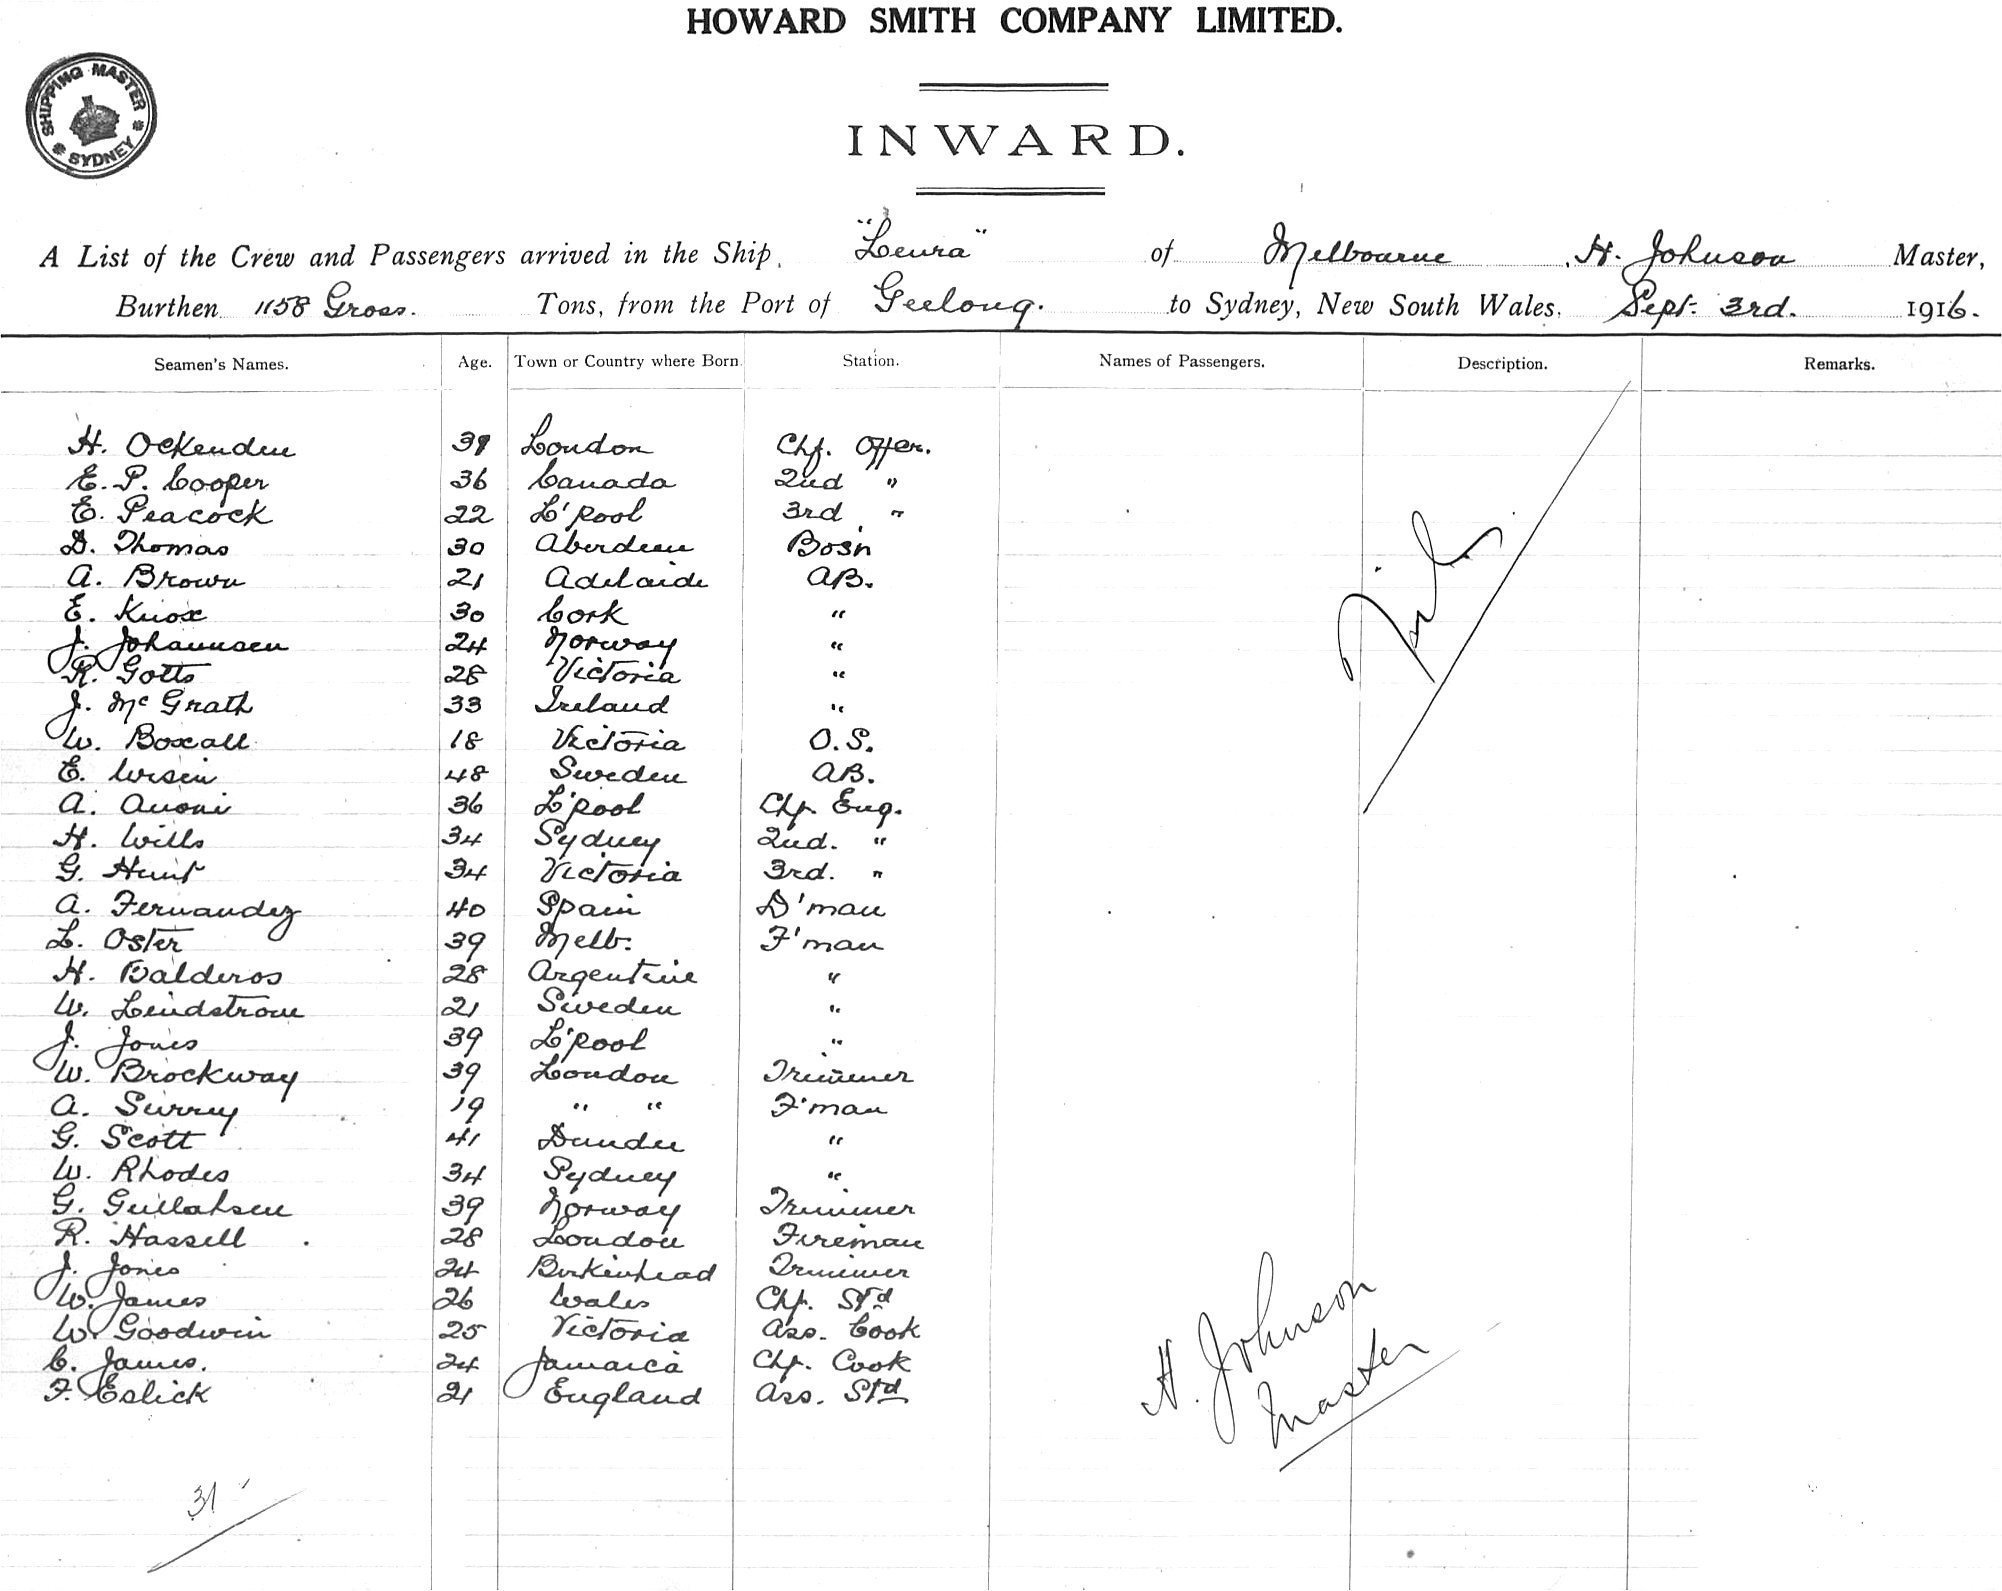 HOWARD SMITH COMPANY LIMITED.
SHIPPING MASTER SYDNEY
INWARD.
A List of the Crew and Passengers arrived in the Ship, "Leura" of Melbourne, H. Johnson Master,
Burthen 1158 Gross. Tons, from the Port of Geelong. to Sydney, New South Wales, Sept. 3rd. 1916.
Seamen's Names. Age. Town or Country where Born. Station. Names of Passengers. Description. Remarks.
H. Ockenden London Chf. Offer.
E. P. Cooper 36 Canada 2nd "
E. Peacock 22 L'pool 3rd "
D. Thomas 30 Aberdeen Bosn
A. Brown 21 Adelaide AB.
E. Knox 30 Cork "
J. Johannsen 24 Norway "
R. Gotts 28 Victoria "
J. McGrath 33 Ireland "
W. Boxall 18 Victoria O.S.
E. 48 Sweden AB.
A. 36 L'pool Chf. Eng.
H. Wills 34 Sydney 2nd. "
G. Hunt 34 Victoria 3rd. "
A. Fernandez 40 Spain D'man
L. Oster 39 Melb. F'man
H. Balderos 28 Argentine "
W. Lindstrom 21 Sweden "
J. Jones 39 L'pool "
W. Brockway 39 London Trimmer
A. Surrey 19 " " F'man
G. Scott 41 Dundee "
W. Rhodes 34 Sydney "
G. 39 Norway Trimmer
R. Hassell 28 London Fireman
J. Jones 24 Birkenhead Trimmer
W. James 26 Wales Chf. Std
W. Goodwin 25 Victoria Ass. Cook
C. James. 24 Jamaica Chf. Cook
F. Eslick 21 England Ass. Std
Nil
H. Johnson
Master
31